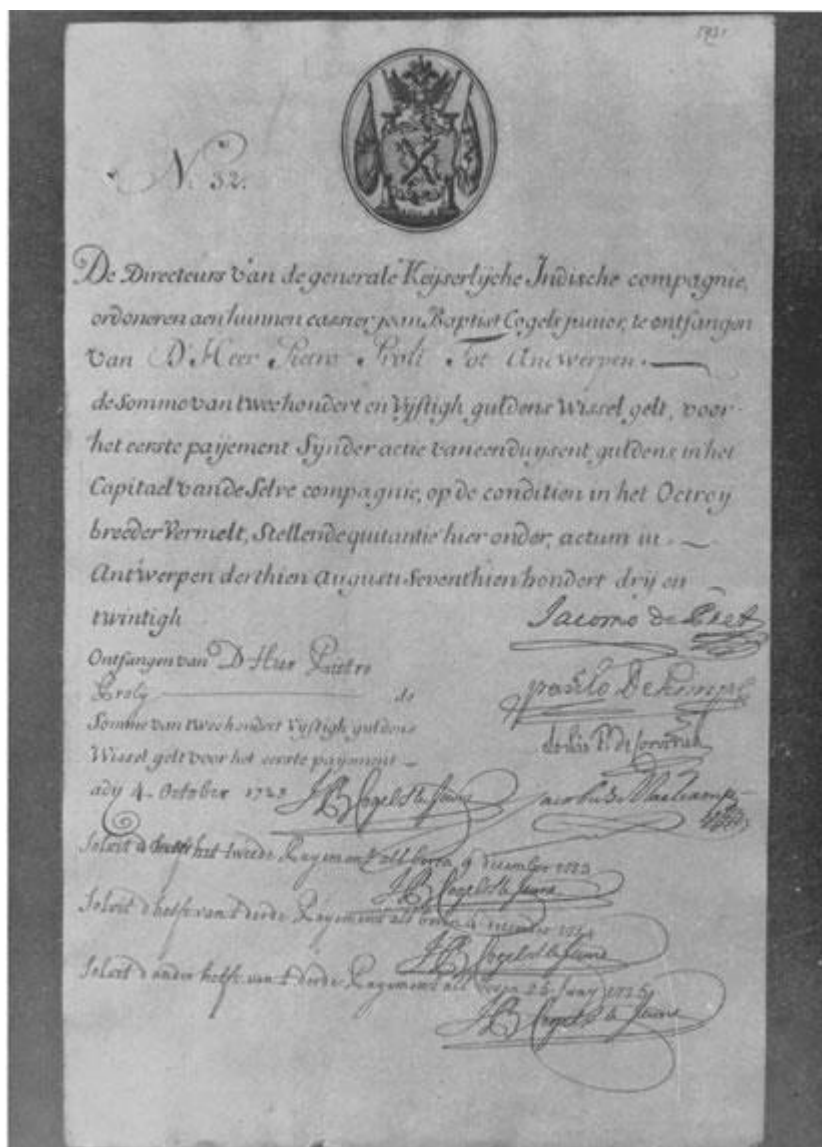 N. 32.
De Directeurs van de generale Keyserlijche Indische compagnie,
ordoneren aen hunnen cassier jean Baptist Cogels junior, te ontfangen
van D'Heer Pietro Proli tot Antwerpen.
de Somme van tweehondert en Vijftigh guldens Wissel gelt, voor
het eerste paijement Sijnder actie van een duysent guldens, in het
Capitael van de Selve compagnie, op de condition in het Octroy
breeder Vermelt, Stellende quitantie hier onder, actum in
Antwerpen derthien Augusti Seventhien hondert drij en
twintigh
Jacomo de Pret
Ontfangen van D'Heer Pietro
Proly de
Somme van tweehondert Vijftigh guldens
Wissel gelt voor het eerste paijement
ady 4 October 1723 JB Cogels le Jeune
Solvit d'helft het tweede Payement als boven 9 december 1723
JB Cogels le Jeune
Solvit d'helft van t derde Payement als boven december
JB Cogels le Jeune
Solvit d'ander helft van t derde Payement als boven
JB Cogels le Jeune